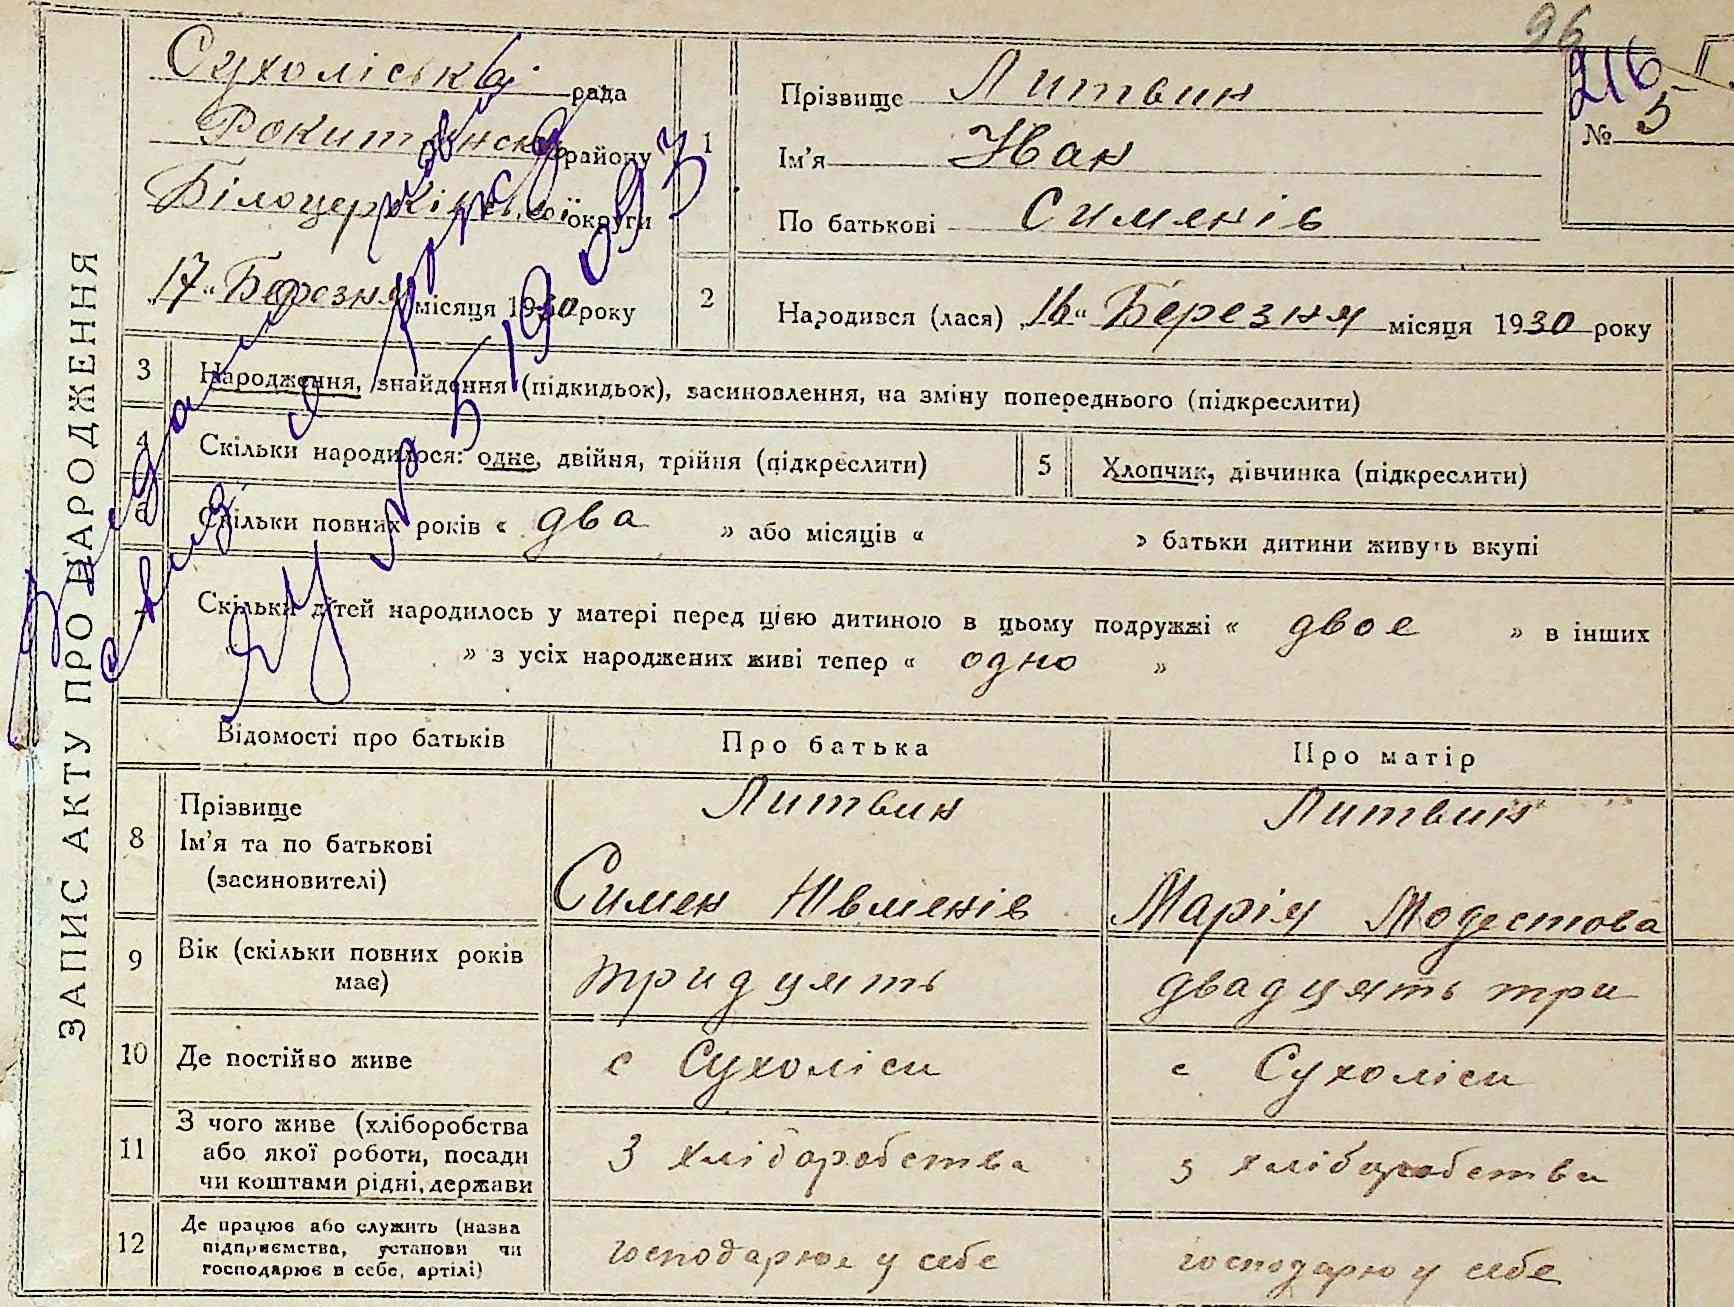 96
216
Сухоліськві рада
Рокитянського району
Білоцерківської округи
„17“ Березня місяця 1930 року
1
Прізвище Литвин
Ім'я Иван
По батькові Сименів
№ 5
2
Народився (лася) „16“ Березня місяця 1930 року
ЗАПИС АКТУ ПРО НАРОДЖЕННЯ
3
Народження, знайдення (підкидьок), засиновлення, на зміну попереднього (підкреслити)
4
Скільки народилося: одне, двійня, трійня (підкреслити)
5
Хлопчик, дівчинка (підкреслити)
6
Скільки повних років « два » або місяців « » батьки дитини живуть вкупі
7
Скільки дітей народилось у матері перед цією дитиною в цьому подружжі « двое » в інших
» з усіх народжених живі тепер « одно »
Відомості про батьків
Про батька
Про матір
8
Прізвище
Ім'я та по батькові
(засиновителі)
Литвин
Симен Ювменів
Литвин
Марія Модестова
9
Вік (скільки повних років
має)
тридцять
двадцять три
10
Де постійно живе
с Сухоліси
с Сухоліси
11
З чого живе (хліборобства
або якої роботи, посади
чи коштами рідні, держави
З хліборобства
з хліборобства
12
Де працює або служить (назва
підприємства, установи чи
господарює в себе, артілі)
господарює у себе
господарю у себе